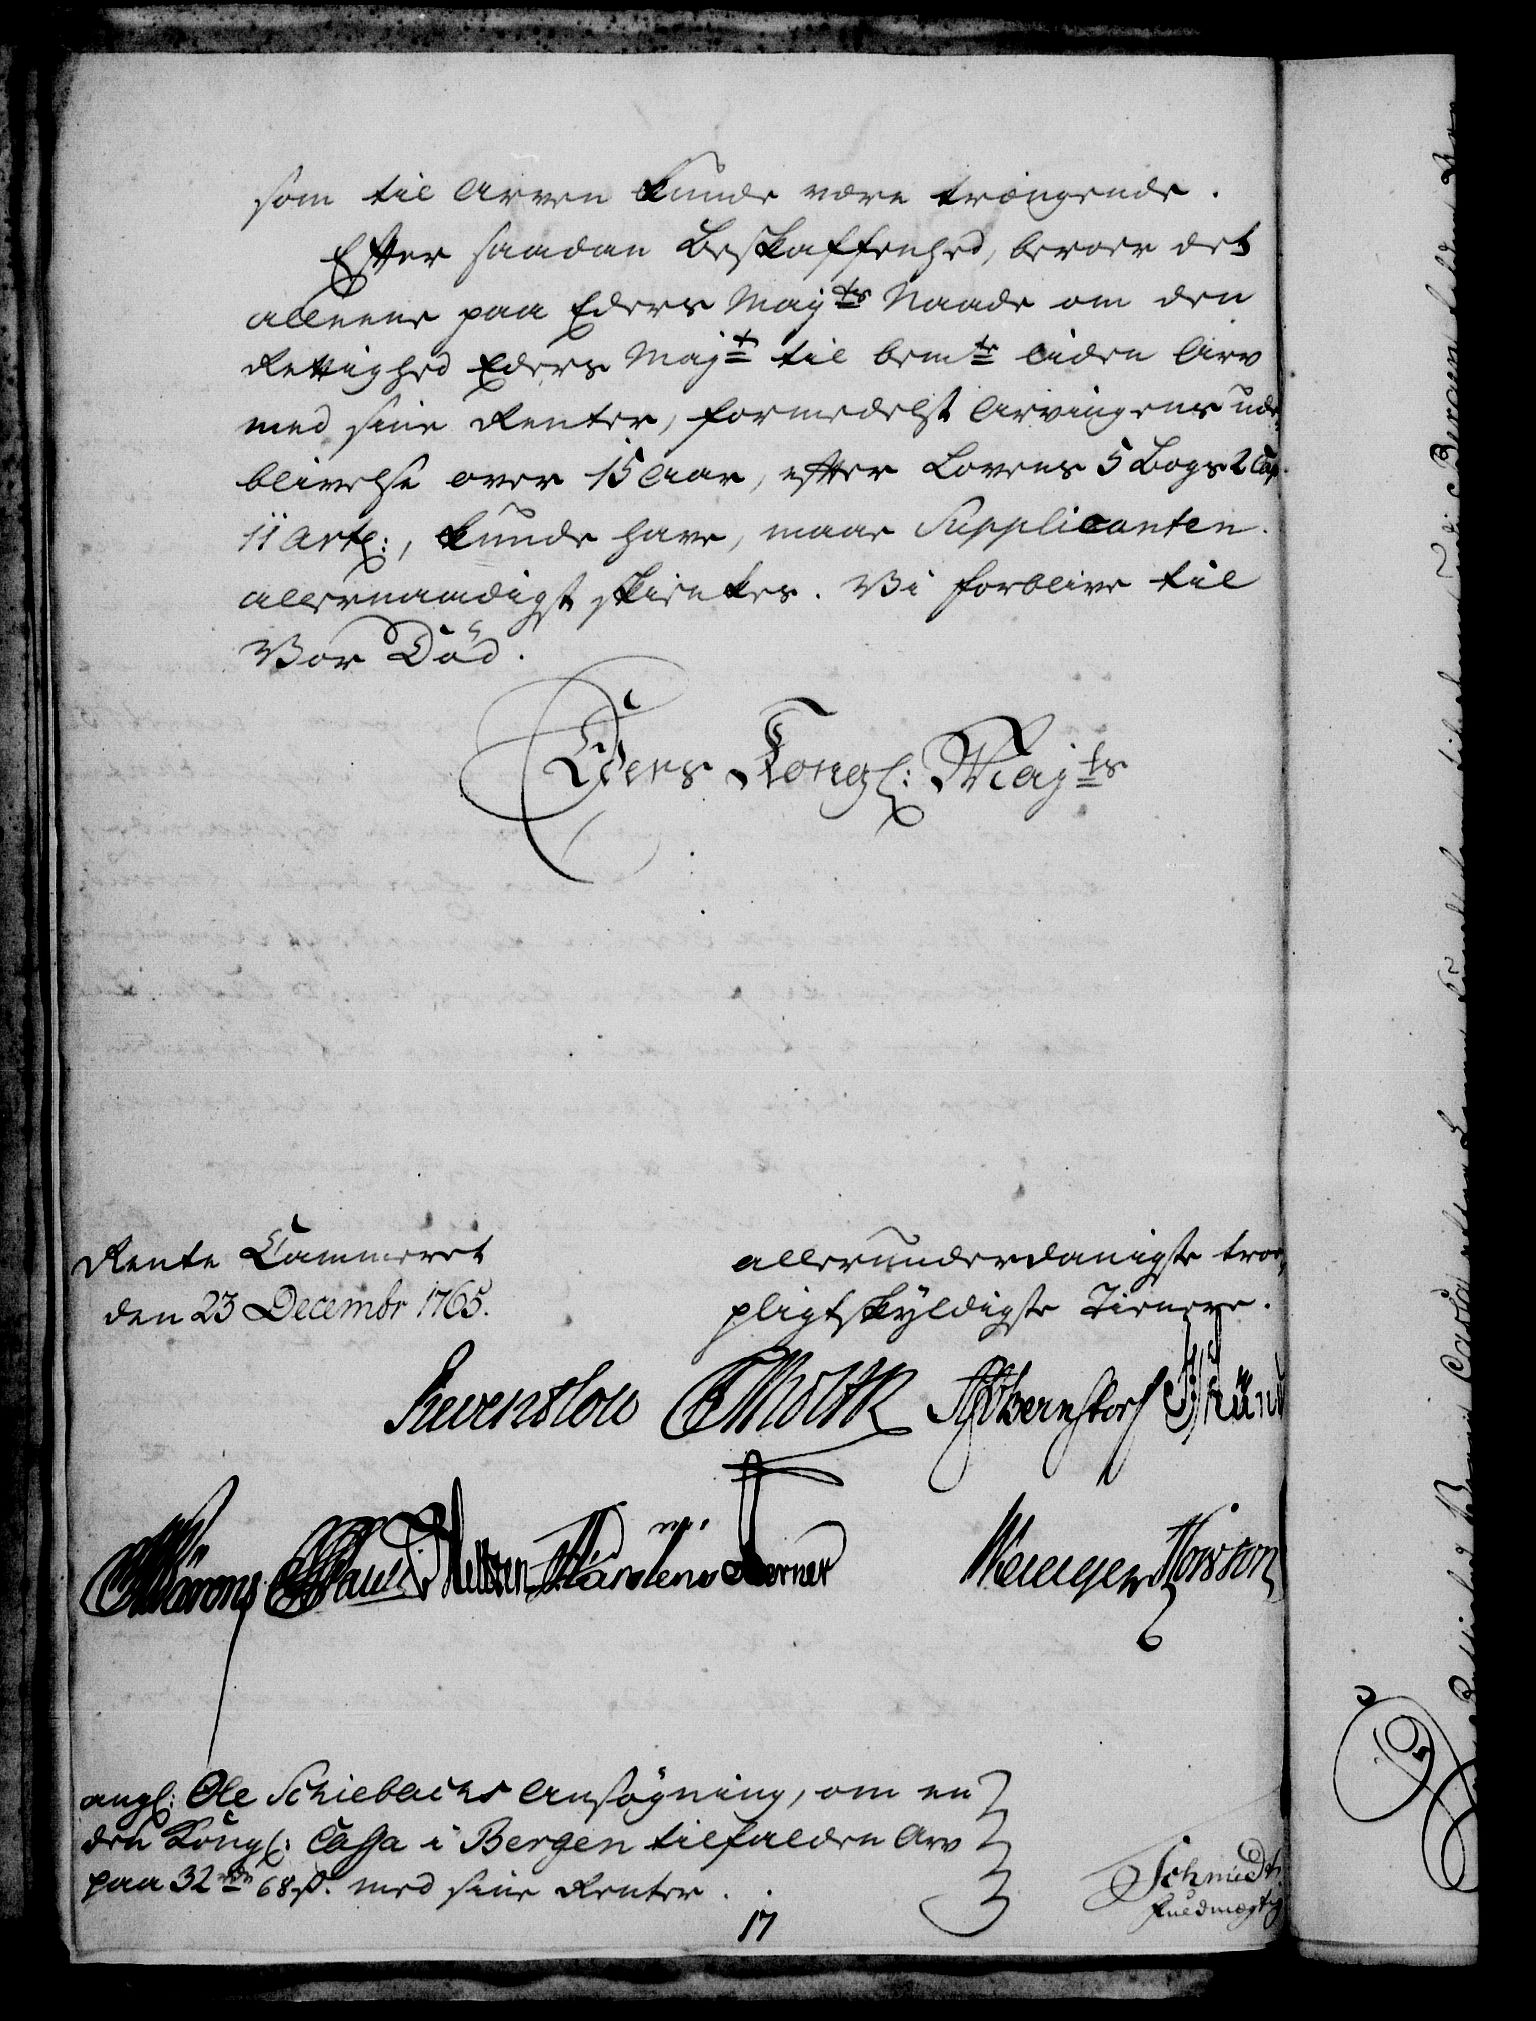 som til Arven kunde være trængende.
Efter saadan Beskaffenhed, beroer det
alleene paa Eders Maj:ts Naade om den
Rettighed Eders Maj:t til bem:te liden Arv
med sine Renter, formedelst Arvingens ude-
blivelse over 15 Aar, efter Lovens 5 Bogs 2 Cap:
11 Art:, kunde have, maae Supplicanten
allernaadigst skienkes. Vi forblive til
Vor Död.
Eders Kongl: Maj:ts
Rente Cammeret
den 23 Decembr 1765.
allerunderdanigste troe
pligtskyldigste Tienere.
Reventlou Moltk Bernstorf
Nelleen Berner
angl: Ole Schiebachs Ansögning, om en
den Kongl: Cassa i Bergen tilfalden Arv
paa 32 rdr 68 s. med sine Renter.
Schmidt
Fuldmægtig
17